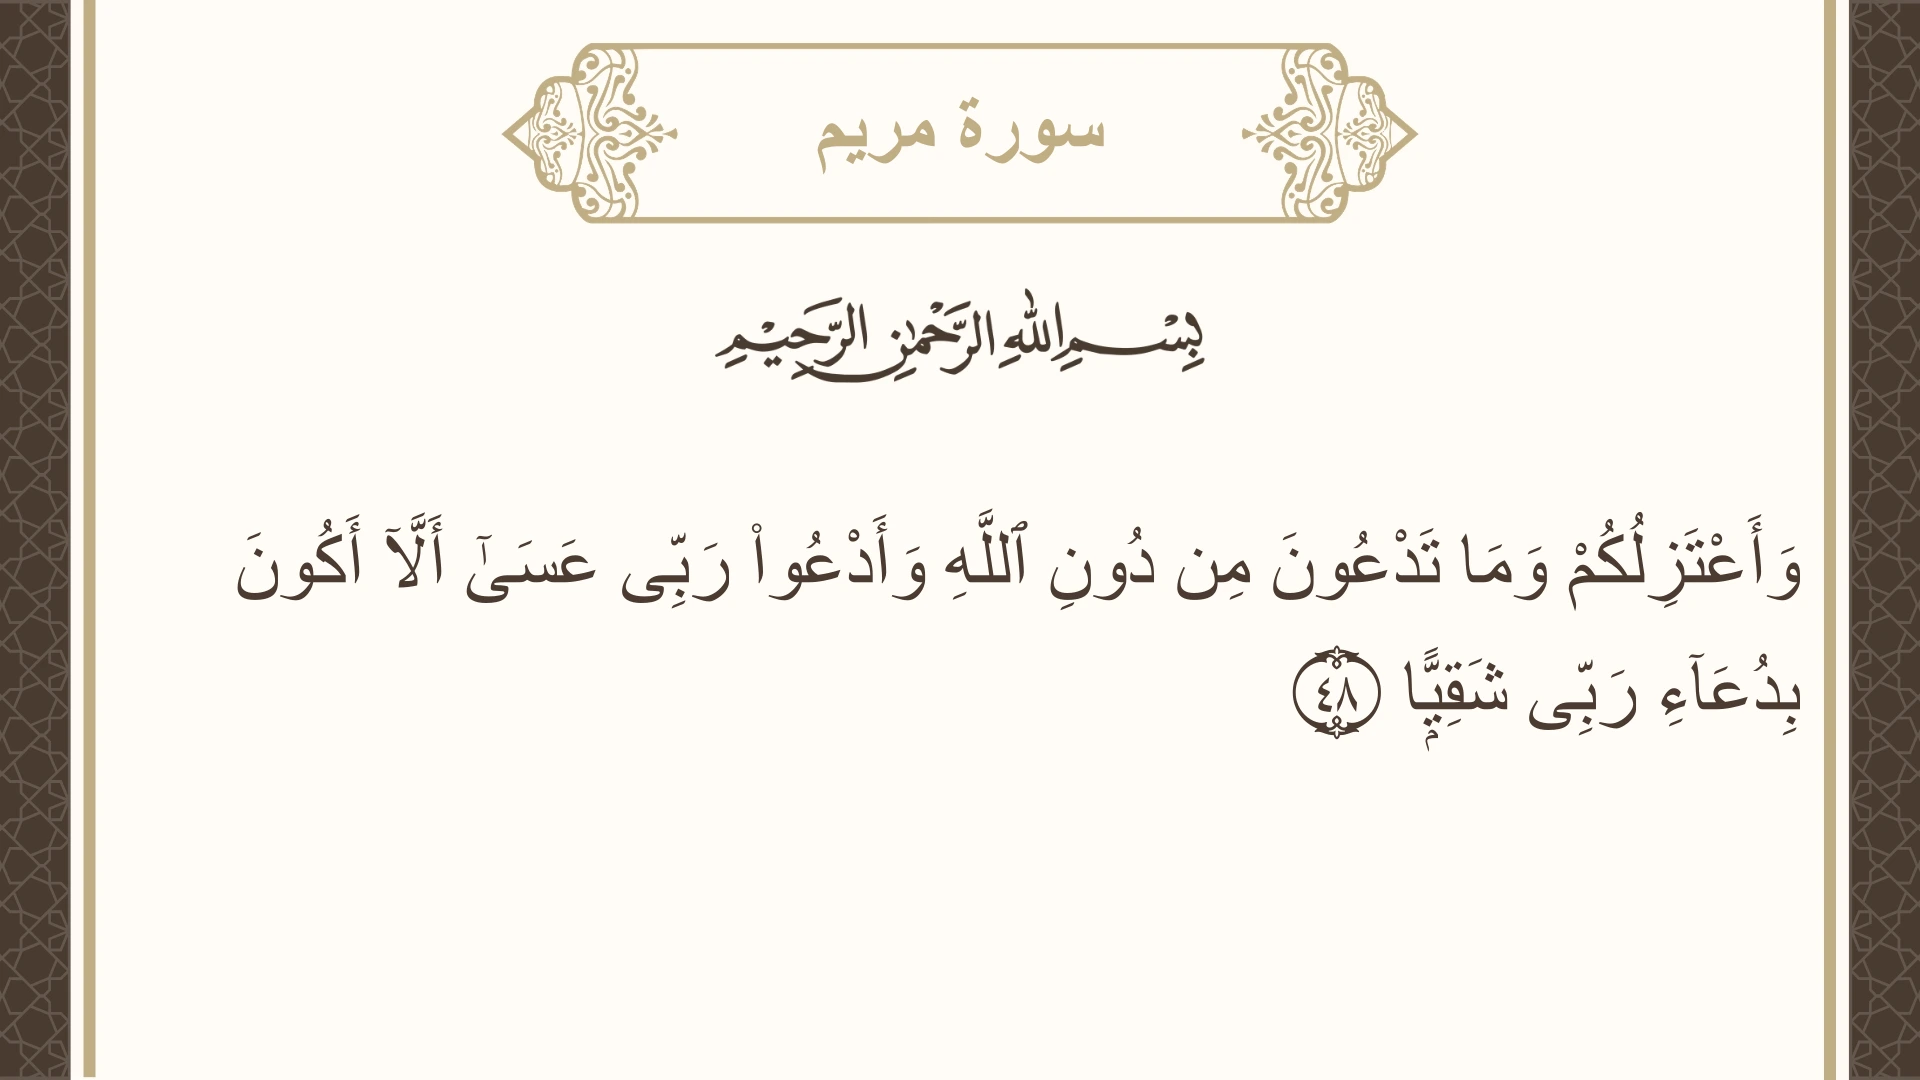 سورة مريم
بِسْمِ اللهِ الرَّحْمٰنِ الرَّحِيْمِ
وَأَعْتَزِلُكُمْ وَمَا تَدْعُونَ مِن دُونِ ٱللَّهِ وَأَدْعُوا۟ رَبِّى عَسَىٰٓ أَلَّآ أَكُونَ
بِدُعَآءِ رَبِّى شَقِيًّۭا ٤٨